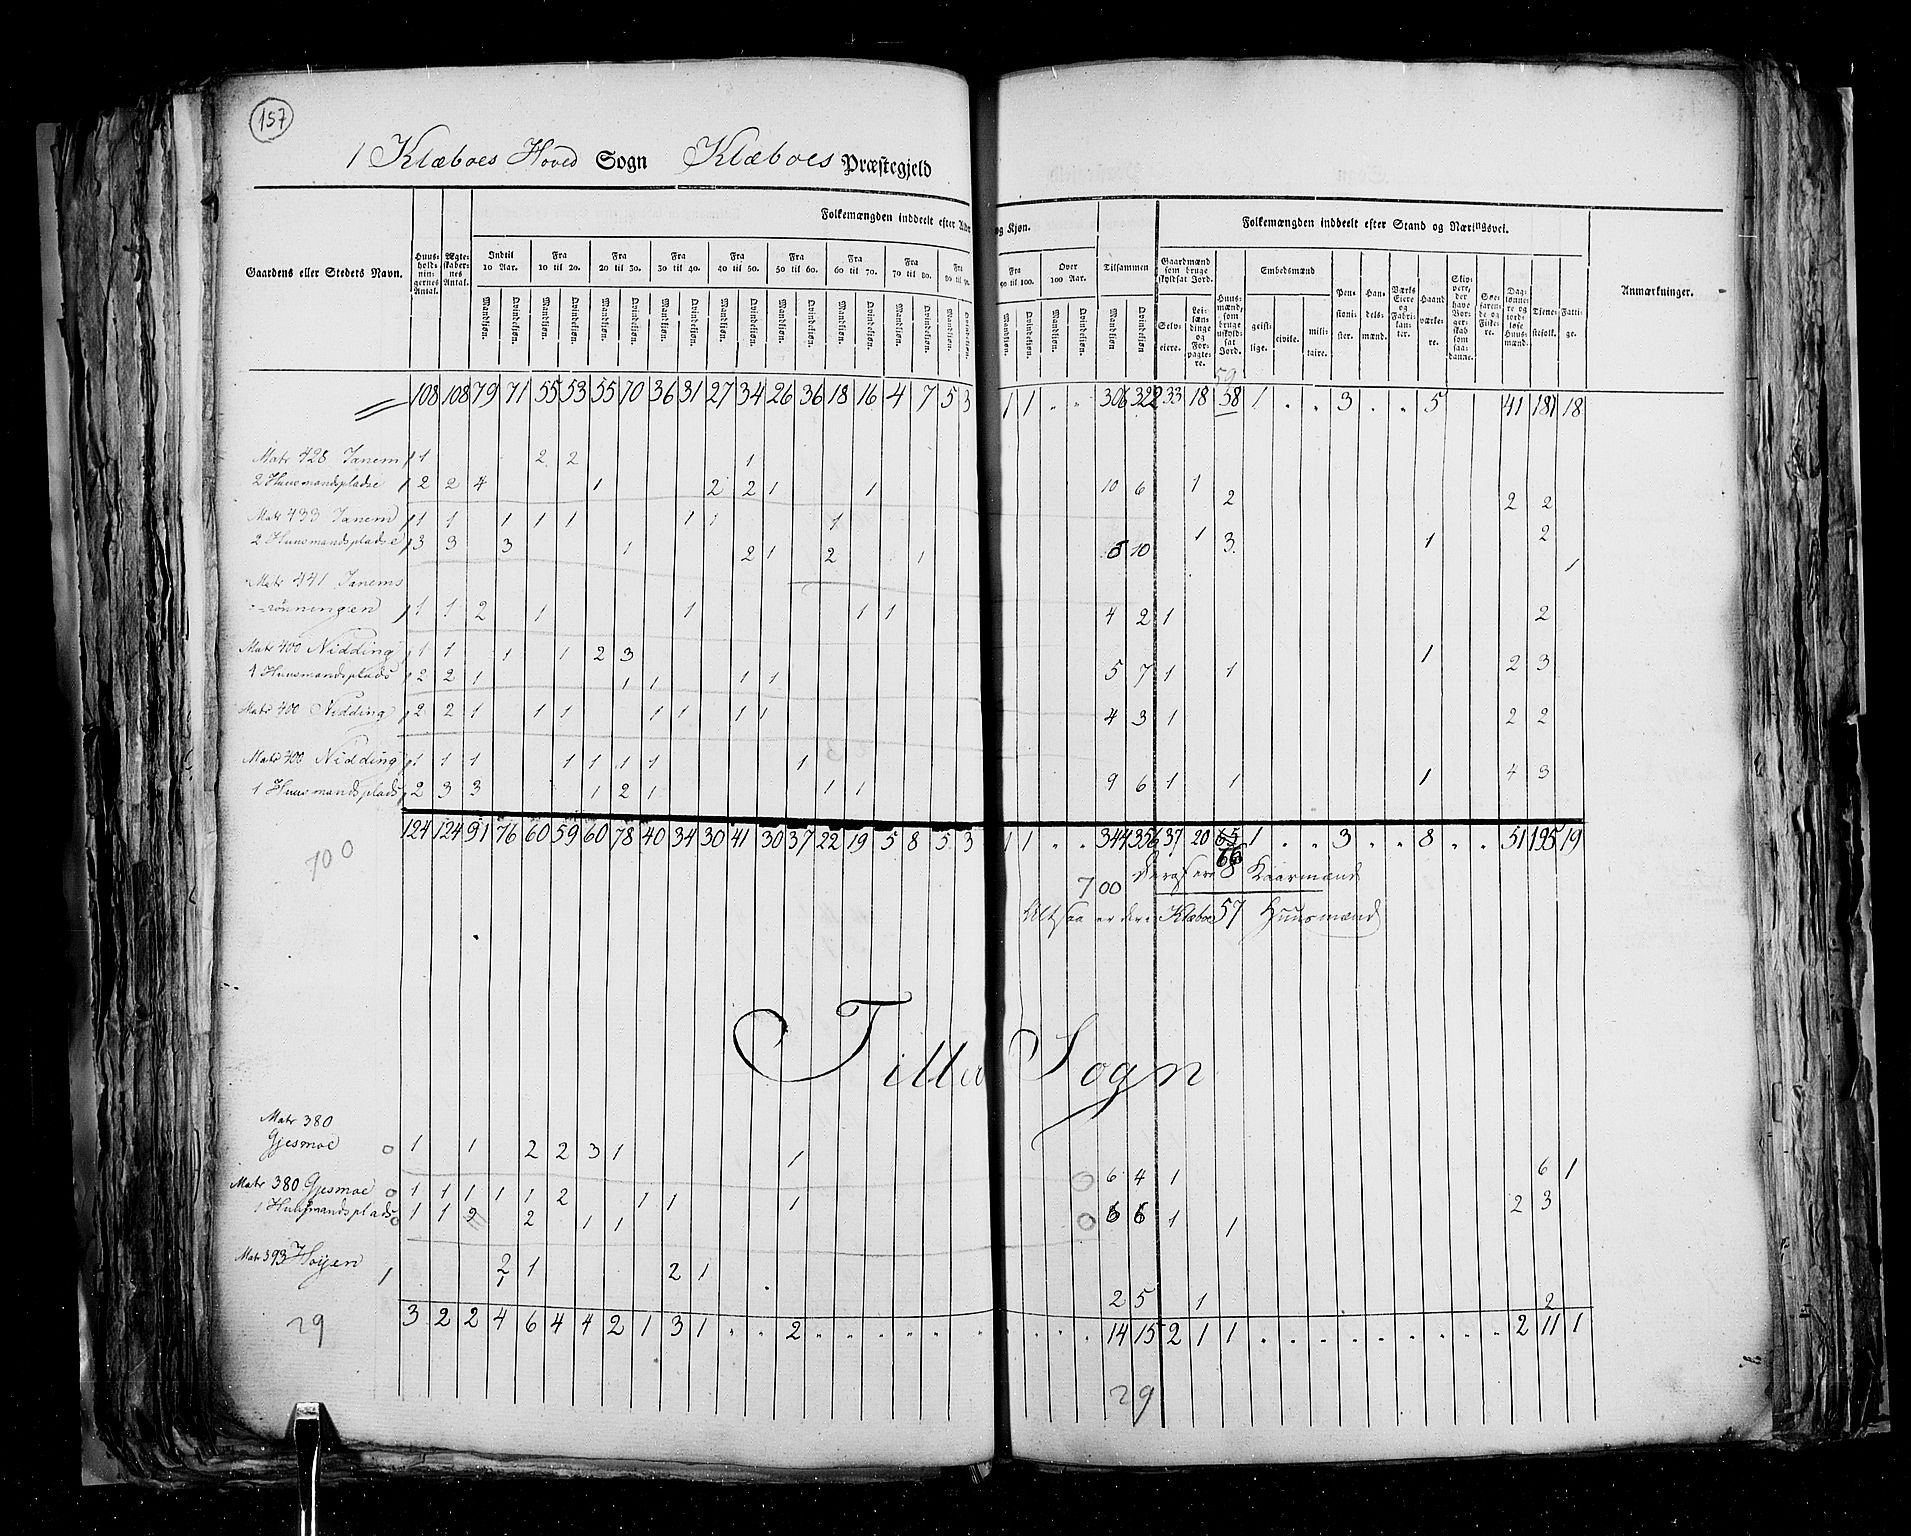 157
1 Klæboes Hoved Sogn Klæboes Præstegjeld
Gaardens eller Stedets Navn. Huusholdningernes Antal. Ægteskabernes Antal. Folkemængden inddeelt efter Alder og Kjøn. Folkemængden inddeelt efter Stand og Næringsvei. Anmærkninger.
Indtil 10 Aar. Fra 10 til 20. Fra 20 til 30. Fra 30 til 40. Fra 40 til 50. Fra 50 til 60. Fra 60 til 70. Fra 70 til 80. Fra 80 til 90. Fra 90 til 100. Over 100 Aar. Tilsammen Gaardmænd som bruge skyldsat Jord. Huusmænd, som bruge uskyldsat Jord. Embedsmænd Pensionister. Handelsmænd. Værks Eiere og Fabrikanter. Haandværkere. Skippere, der have Borgerskab som saadanne. Søefarende og Fiskere. Daglønnere og jordløse Huusmænd. Tjenestefolk. Fattige.
Mandkjøn. Qvindekjøn. Mandkjøn. Qvindekjøn. Mandkjøn. Qvindekjøn. Mandkjøn. Qvindekjøn. Mandkjøn. Qvindekjøn. Mandkjøn. Qvindekjøn. Mandkjøn. Qvindekjøn. Mandkjøn. Qvindekjøn. Mandkjøn. Qvindekjøn. Mandkjøn. Qvindekjøn. Mandkjøn. Qvindekjøn. Mandkjøn Qvindekjøn. Selveiere. Leilændinge og Forpagtere. geistlige. civile. militaire.
59
108 108 79 71 55 53 55 70 36 31 27 34 26 36 18 16 4 7 5 3 1 1 " " 306 322 33 18 58 1 " " 3 " " 5 41 181 18
Matr 428 Tanem 1 2 2 1
2 Huusmandspladse 2 2 4 1 2 2 1 1 10 6 1 2 2 2
Matr 433 Tanem 1 1 1 1 1 1 1 1
2 Huusmandspladse 3 3 3 1 2 1 2 1 8 10 1 3 1 2 1
Matr 441 Tanems
rönningen 1 1 2 1 1 1 1 4 2 1 2
Matr 400 Nidding 1 1 1 1 2 3
1 Huusmandsplads 2 2 1 1 1 1 1 5 7 1 1 1 2 3
Matr 400 Nidding 2 2 1 1 1 1 1 1 1 4 3 1 2 2
Matr 400 Nidding 1 1 1 1 1 1 1 1
1 Huusmandsplads 2 3 3 1 2 1 1 1 9 6 1 1 1 4 3
124 124 91 76 60 59 60 78 40 34 30 41 30 37 22 19 5 8 5 3 1 1 " " 344 356 37 20 65 1 " " 3 " " 8 " " 51 195 19
66
700
700 8 Kaarmænd
Altsaa er der i Klæboe 57 Huusmænd
Tiller Sogn
Matr 380
Gjesmoe 1 1 2 2 3 1 1 6 4 1 6 1
Matr 380 Gjesmoe 1 1 1 1 1 2 1 1 1
1 Huusmandsplads 1 1 2 2 1 1 6 6 1 1 2 3
Matr 393 Höyen 1 2 1 2 1 2 5 1 2
3 2 2 4 6 4 4 2 1 3 1 " " 2 " " " " " " " " " " 14 15 2 1 1 " " " " " " " " " 2 11 1
29
29